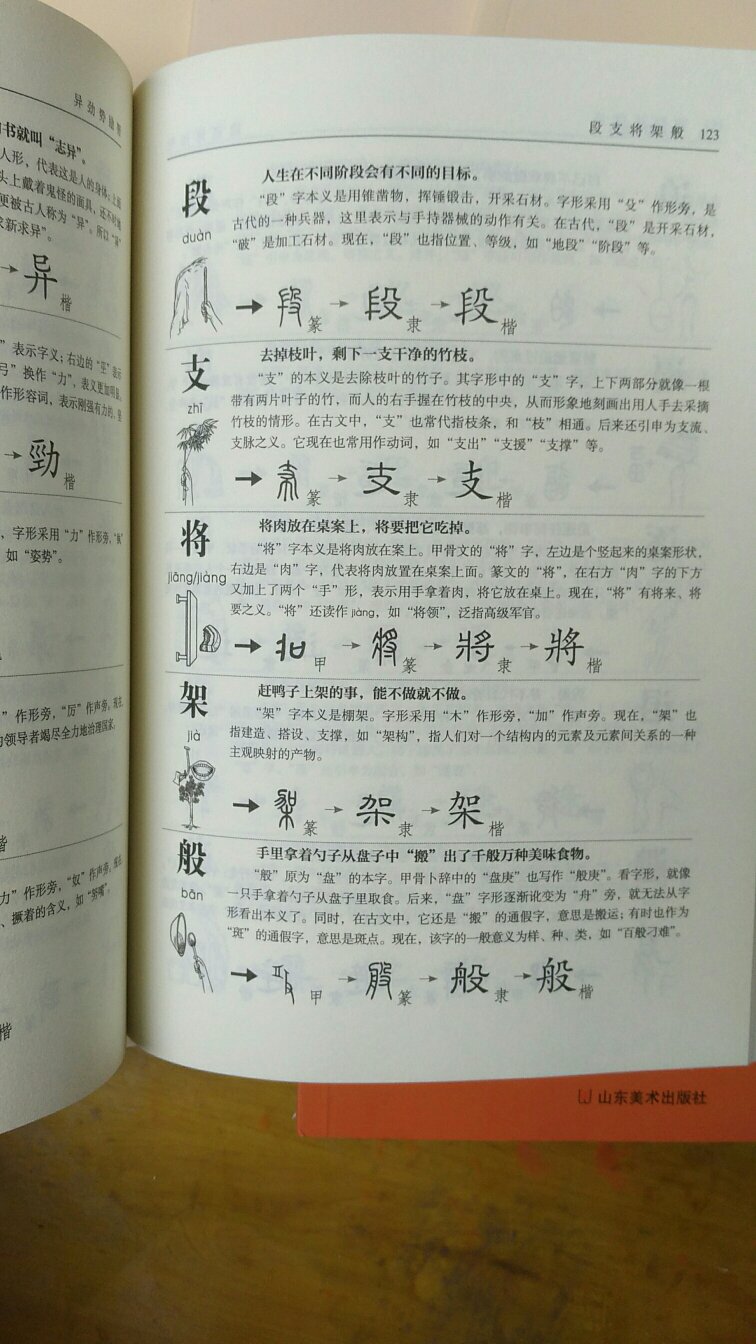 异劲势
书就叫“志异”。
人形，代表这是人的身体；上面
头上戴着鬼怪的面具，还不时地
便被古人称为“异”。所以“异”
求新求异”。
→异楷
”表示字义；右边的“巠”表示
弓”换作“力”，表义更加明显。
作形容词，表示刚强有力的、坚
→勁楷
，字形采用“力”作形旁，“埶”
如“姿势”。
”作形旁，“厉”作声旁。现在，
的领导者竭尽全力地治理国家。
楷
力”作形旁，“奴”作声旁。现在，
、撅着的含义，如“努嘴”。
楷
段支将架般 123
段
duàn
人生在不同阶段会有不同的目标。
“段”字本义是用锥凿物，挥锤锻击，开采石材。字形采用“殳”作形旁，是
古代的一种兵器，这里表示与手持器械的动作有关。在古代，“段”是开采石材，
“破”是加工石材。现在，“段”也指位置、等级，如“地段”“阶段”等。
→段篆→段隶→段楷
支
zhī
去掉枝叶，剩下一支干净的竹枝。
“支”的本义是去除枝叶的竹子。其字形中的“支”字，上下两部分就像一根
带有两片叶子的竹，而人的右手握在竹枝的中央，从而形象地刻画出用人手去采摘
竹枝的情形。在古文中，“支”也常代指枝条，和“枝”相通。后来还引申为支流、
支脉之义。它现在也常用作动词，如“支出”“支援”“支撑”等。
→支篆→支隶→支楷
将
jiāng/jiàng
将肉放在桌案上，将要把它吃掉。
“将”字本义是将肉放在案上。甲骨文的“将”字，左边是个竖起来的桌案形状，
右边是“肉”字，代表将肉放置在桌案上面。篆文的“将”，在右方“肉”字的下方
又加上了两个“手”形，表示用手拿着肉，将它放在桌上。现在，“将”有将来、将
要之义。“将”还读作 jiàng，如“将领”，泛指高级军官。
→甲→將篆→將隶→將楷
架
jià
赶鸭子上架的事，能不做就不做。
“架”字本义是棚架。字形采用“木”作形旁，“加”作声旁。现在，“架”也
指建造、搭设、支撑，如“架构”，指人们对一个结构内的元素及元素间关系的一种
主观映射的产物。
→架篆→架隶→架楷
般
bān
手里拿着勺子从盘子中“搬”出了千般万种美味食物。
“般”原为“盘”的本字。甲骨卜辞中的“盘庚”也写作“般庚”。看字形，就像
一只手拿着勺子从盘子里取食。后来，“盘”字形逐渐讹变为“舟”旁，就无法从字
形看出本义了。同时，在古文中，它还是“搬”的通假字，意思是搬运；有时也作为
“斑”的通假字，意思是斑点。现在，该字的一般意义为样、种、类，如“百般刁难”。
→般甲→般篆→般隶→般楷
山东美术出版社